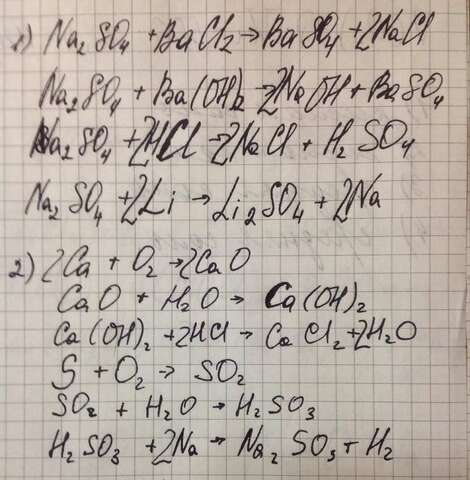 1) Na₂SO₄ + BaCl₂ → BaSO₄ + 2NaCl
Na₂SO₄ + Ba(OH)₂ → 2NaOH + BaSO₄
Na₂SO₄ + 2HCl → 2NaCl + H₂SO₄
Na₂SO₄ + 2Li → Li₂SO₄ + 2Na
2) 2Ca + O₂ → 2CaO
CaO + H₂O → Ca(OH)₂
Ca(OH)₂ + 2HCl → CaCl₂ + 2H₂O
S + O₂ → SO₂
SO₂ + H₂O → H₂SO₃
H₂SO₃ + 2Na → Na₂SO₃ + H₂